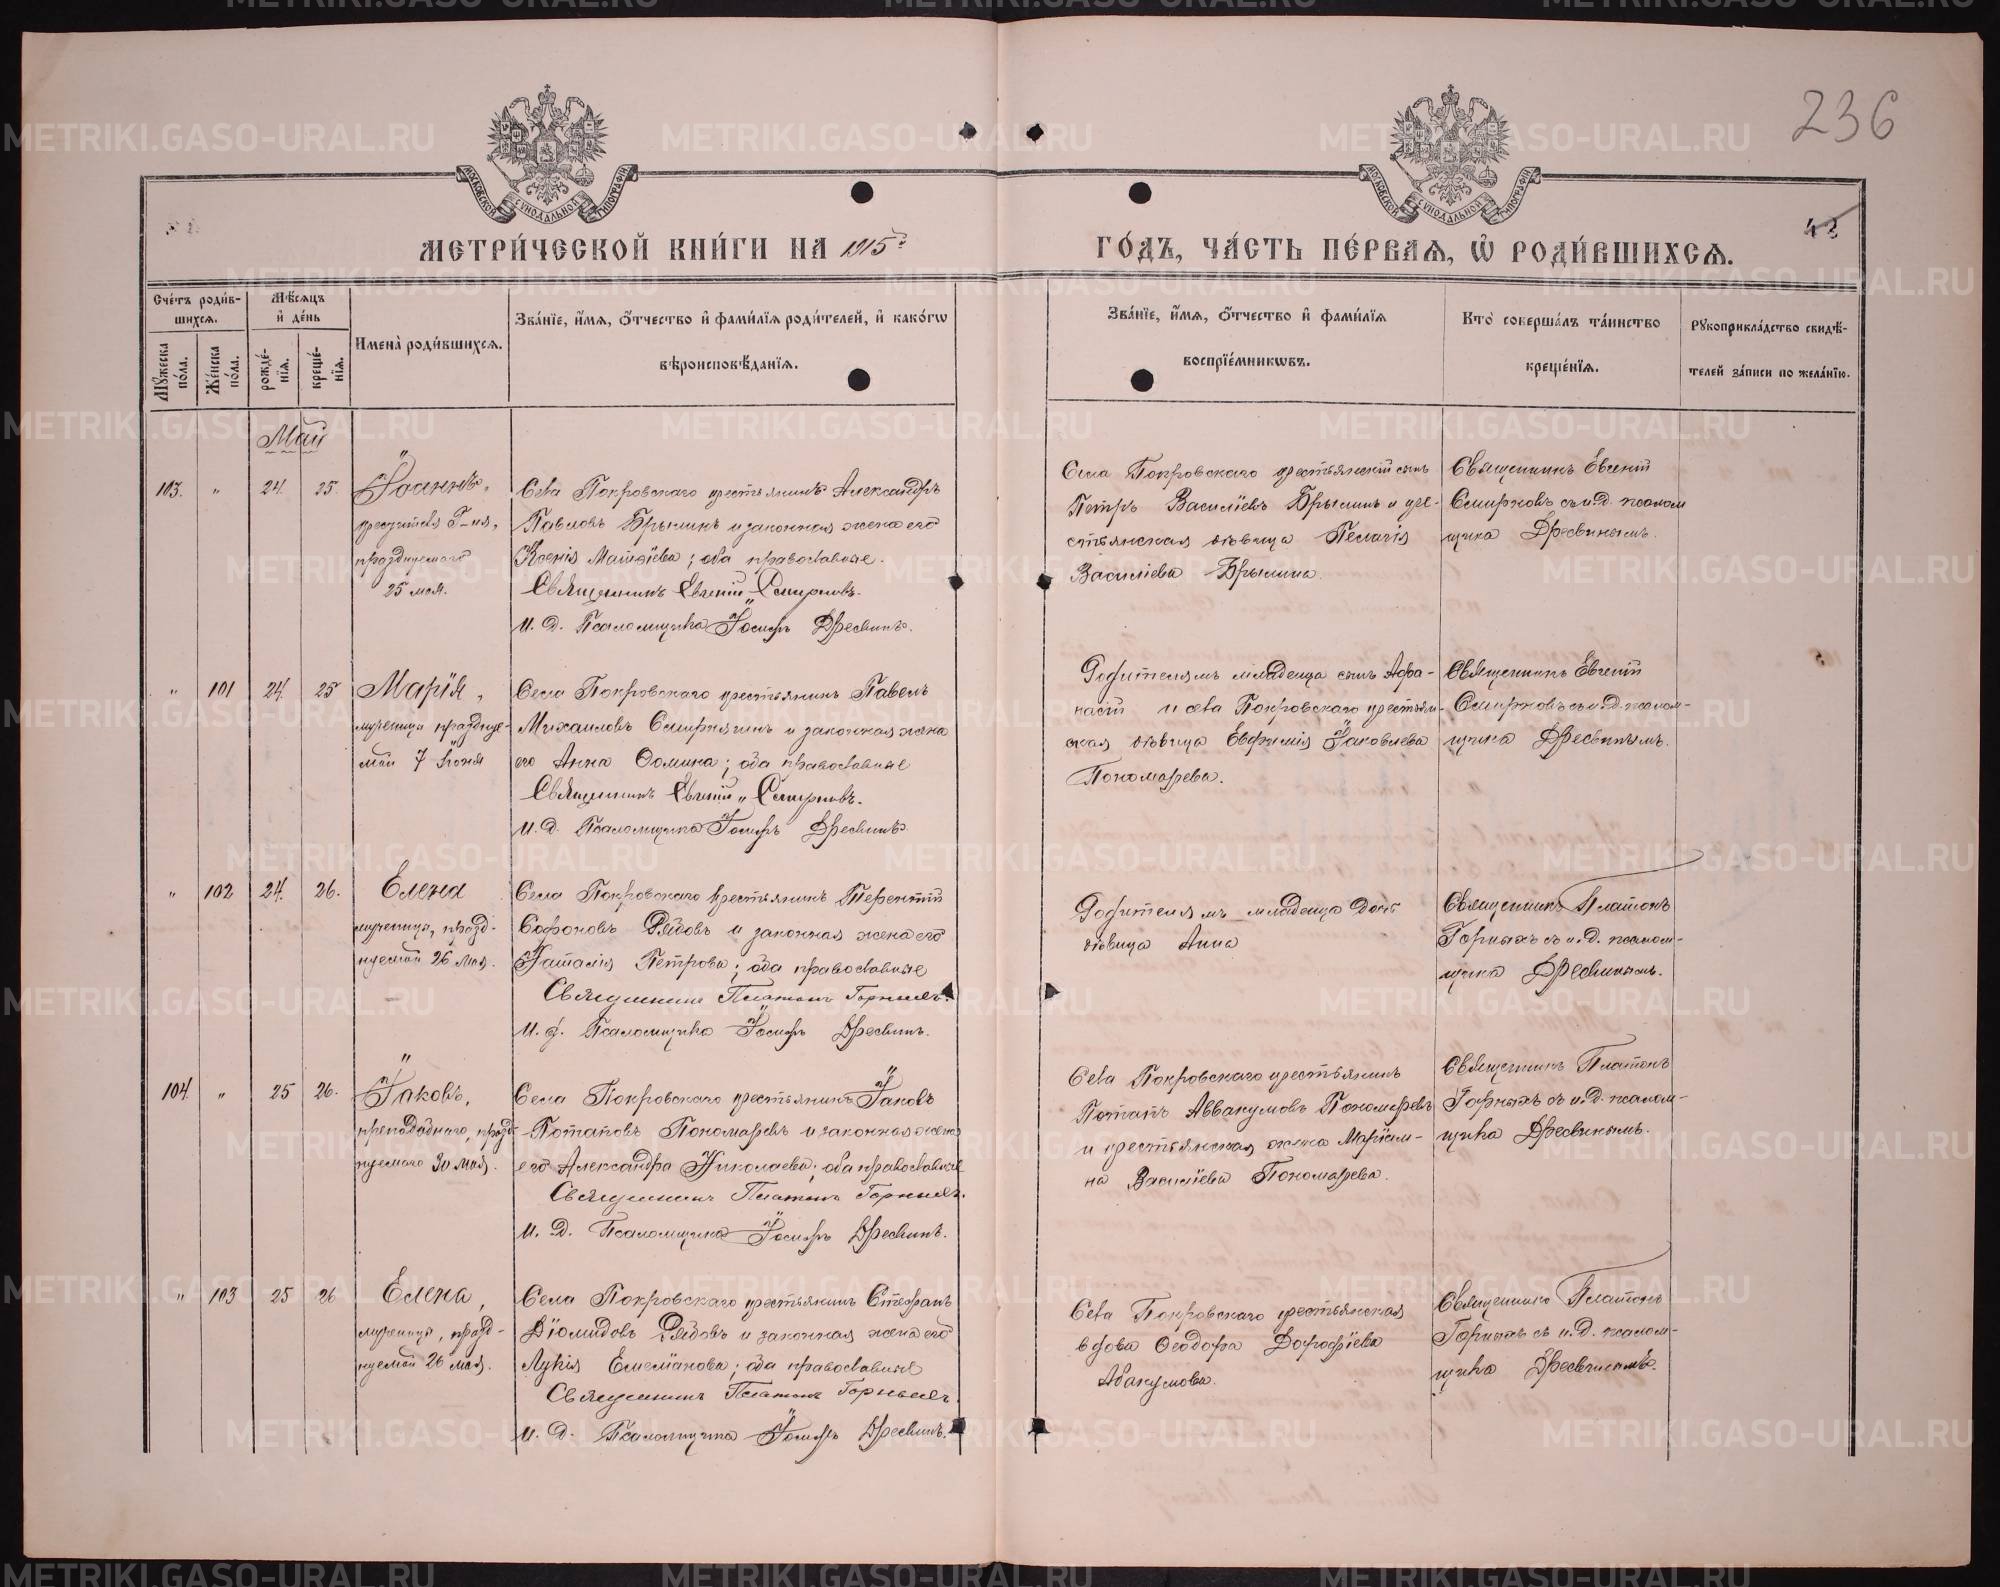 236
МОСКОВСКОЙ СѴНОДАЛЬНОЙ ТИПОГРАФІИ
МОСКОВСКОЙ СѴНОДАЛЬНОЙ ТИПОГРАФІИ
43
МЕТРИ́ЧЕСКОЙ КНИ́ГИ НА 1915
ГО́ДЪ, ЧА́СТЬ ПЕ́РВАЯ, Ѡ РОДИ́ВШИХСЯ.
Сче́тъ роди́в-
шихся.
Мужеска по́ла.
Же́нска по́ла.
Мѣ́сяцъ
и де́нь
рожде́-
нія.
креще́-
нія.
Имена̀ роди́вшихся.
Зва́ніе, и́мя, о́тчество и фами́лія роди́телей, и како́гѡ
вѣроисповѣ́данія.
Зва́ніе, и́мя, о́тчество и фами́лія
воспріе́мникѡвъ.
Кто̀ соверша́лъ та́инство
креще́нія.
Рукоприкла́дство свидѣ́-
телей за́писи по жела́нію.
Май
103. „ 24. 25.
Іоаннъ,
праздуемаго
25 мая.
Села Покровскаго крестьянинъ Александръ
Павловъ Брылинъ и законная жена его
Ксенія Матѳіева; оба православные.
Священникъ Евгеній Смирновъ.
И. д. Псаломщика Іосифъ Дресвинъ.
Села Покровскаго крестьянскій сынъ
Петръ Василіевъ Брылинъ и кре-
стьянская дѣвица Пелагія
Василіева Брылина.
Священникъ Евгеній
Смирновъ съ и.д. псалом
щика Дресвинымъ.
„ 101 24. 25
Марія,
мученица празднуе-
мой 7 Іюня
Села Покровскаго крестьянинъ Павелъ
Михаиловъ Смирнягинъ и законная жена
его Анна Ѳомина; оба православные
Священникъ Евгеній Смирновъ.
И. д. Псаломщика Іосифъ Дресвинъ.
Родителямъ младенца сынъ Аѳа-
насій и села Покровскаго крестьян-
ская дѣвица Евфимія Іаковлева
Пономарева.
Священникъ Евгеній
Смирновъ съ и.д. псалом-
щика Дресвинымъ.
„ 102 24. 26.
Елена
мученица, празд-
нуемой 26 мая.
Села Покровскаго крестьянинъ Терентій
Софоновъ Рядовъ и законная жена его
Наталія Петрова; оба православные
Священникъ Платонъ Горныхъ.
И. д. Псаломщика Іосифъ Дресвинъ.
Родителямъ младенца дочь
дѣвица Анна
Священникъ Платонъ
Горныхъ съ и.д. псалом-
щика Дресвинымъ.
104. „ 25 26.
Іаковъ,
преподобнаго, празд-
нуемаго 30 мая.
Села Покровскаго крестьянинъ Іаковъ
Потаповъ Пономаревъ и законная жена
его Александра Николаева; оба православные
Священникъ Платонъ Горныхъ.
И. Д. Псаломщика Іосифъ Дресвинъ.
Села Покровскаго крестьянинъ
Потапъ Аввакумовъ Пономаревъ
и крестьянская жена Маріам-
на Василіева Пономарева.
Священникъ Платонъ
Горныхъ съ и.д. псалом-
щика Дресвинымъ.
„ 103 25 26
Елена,
мученица, празд-
нуемой 26 мая.
Села Покровскаго крестьянинъ Стефанъ
Діомидовъ Рядовъ и законная жена его
Лукія Емеліанова; оба православные
Священникъ Платонъ Горныхъ.
И. д. Псаломщика Іосифъ Дресвинъ.
Села Покровскаго крестьянская
вдова Ѳеодора Дорофіева
Абакумова.
Священникъ Платонъ
Горныхъ съ и.д. псалом-
щика Дресвинымъ.
METRIKI.GASO-URAL.RU